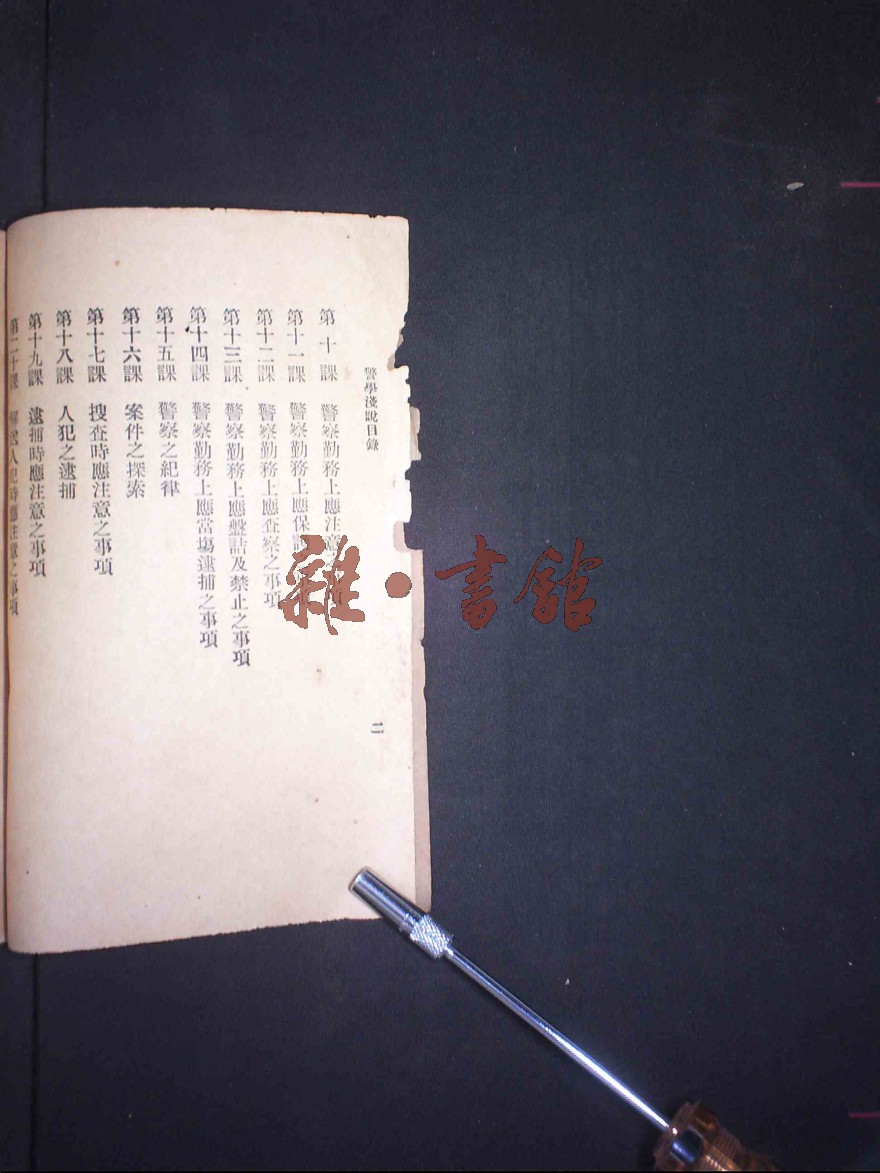 警學淺說目錄
第十課　警察勤務上應注意之事項
第十一課　警察勤務上應保
第十二課　警察勤務上應查察之事項
第十三課　警察勤務上應盤詰及禁止之事項
第十四課　警察勤務上應當場逮捕之事項
第十五課　警察之紀律
第十六課　案件之探索
第十七課　搜查時應注意之事項
第十八課　人犯之逮捕
第十九課　逮捕時應注意之事項
第二十課　解送人犯時應注意之事項
二
雜·書館